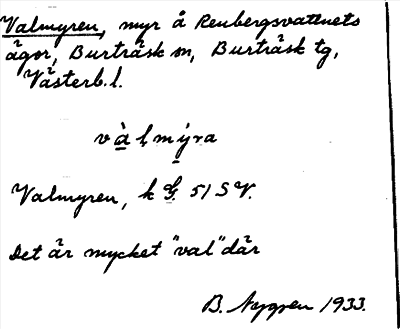 Valmyren, myr å Renbergsvattnets
ägor, Burträsk sn, Burträsk tg,
Västerb. l.
vàlmýra
Valmyren, k G. 51 SV.
Det är mycket "val" där
B. 1933.